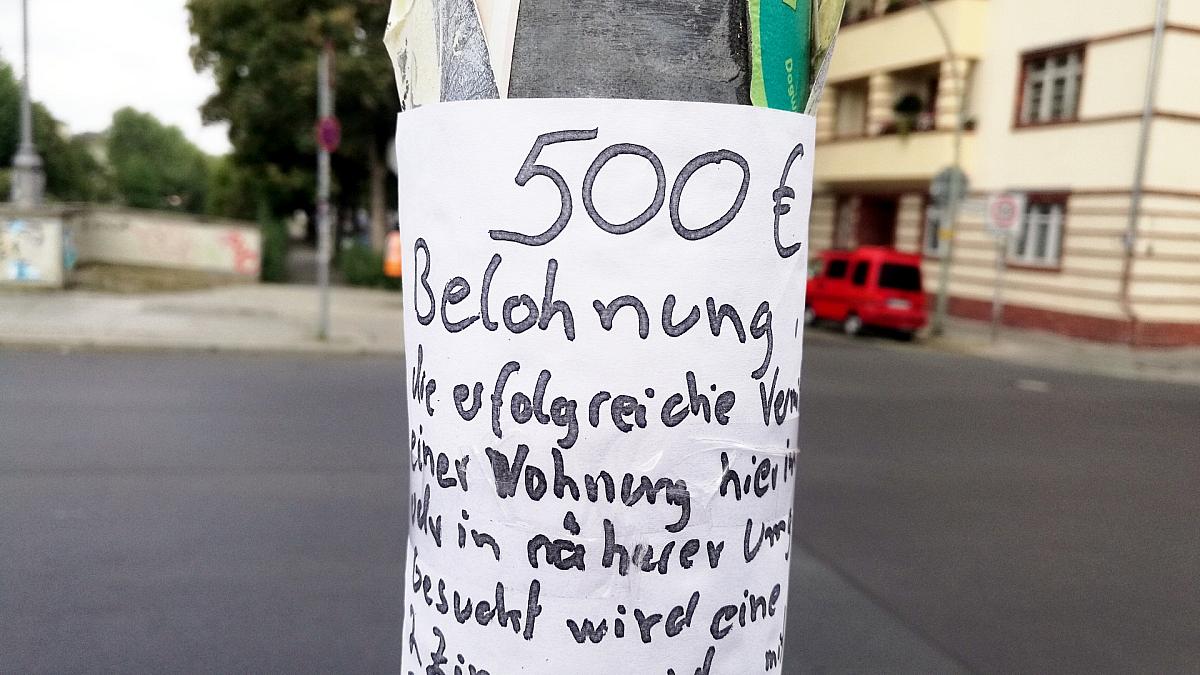 500 €
Belohnung
die erfolgreiche Verm
einer Wohnung hier in
oder in näherer Umg
Gesucht wird eine
2 Zim